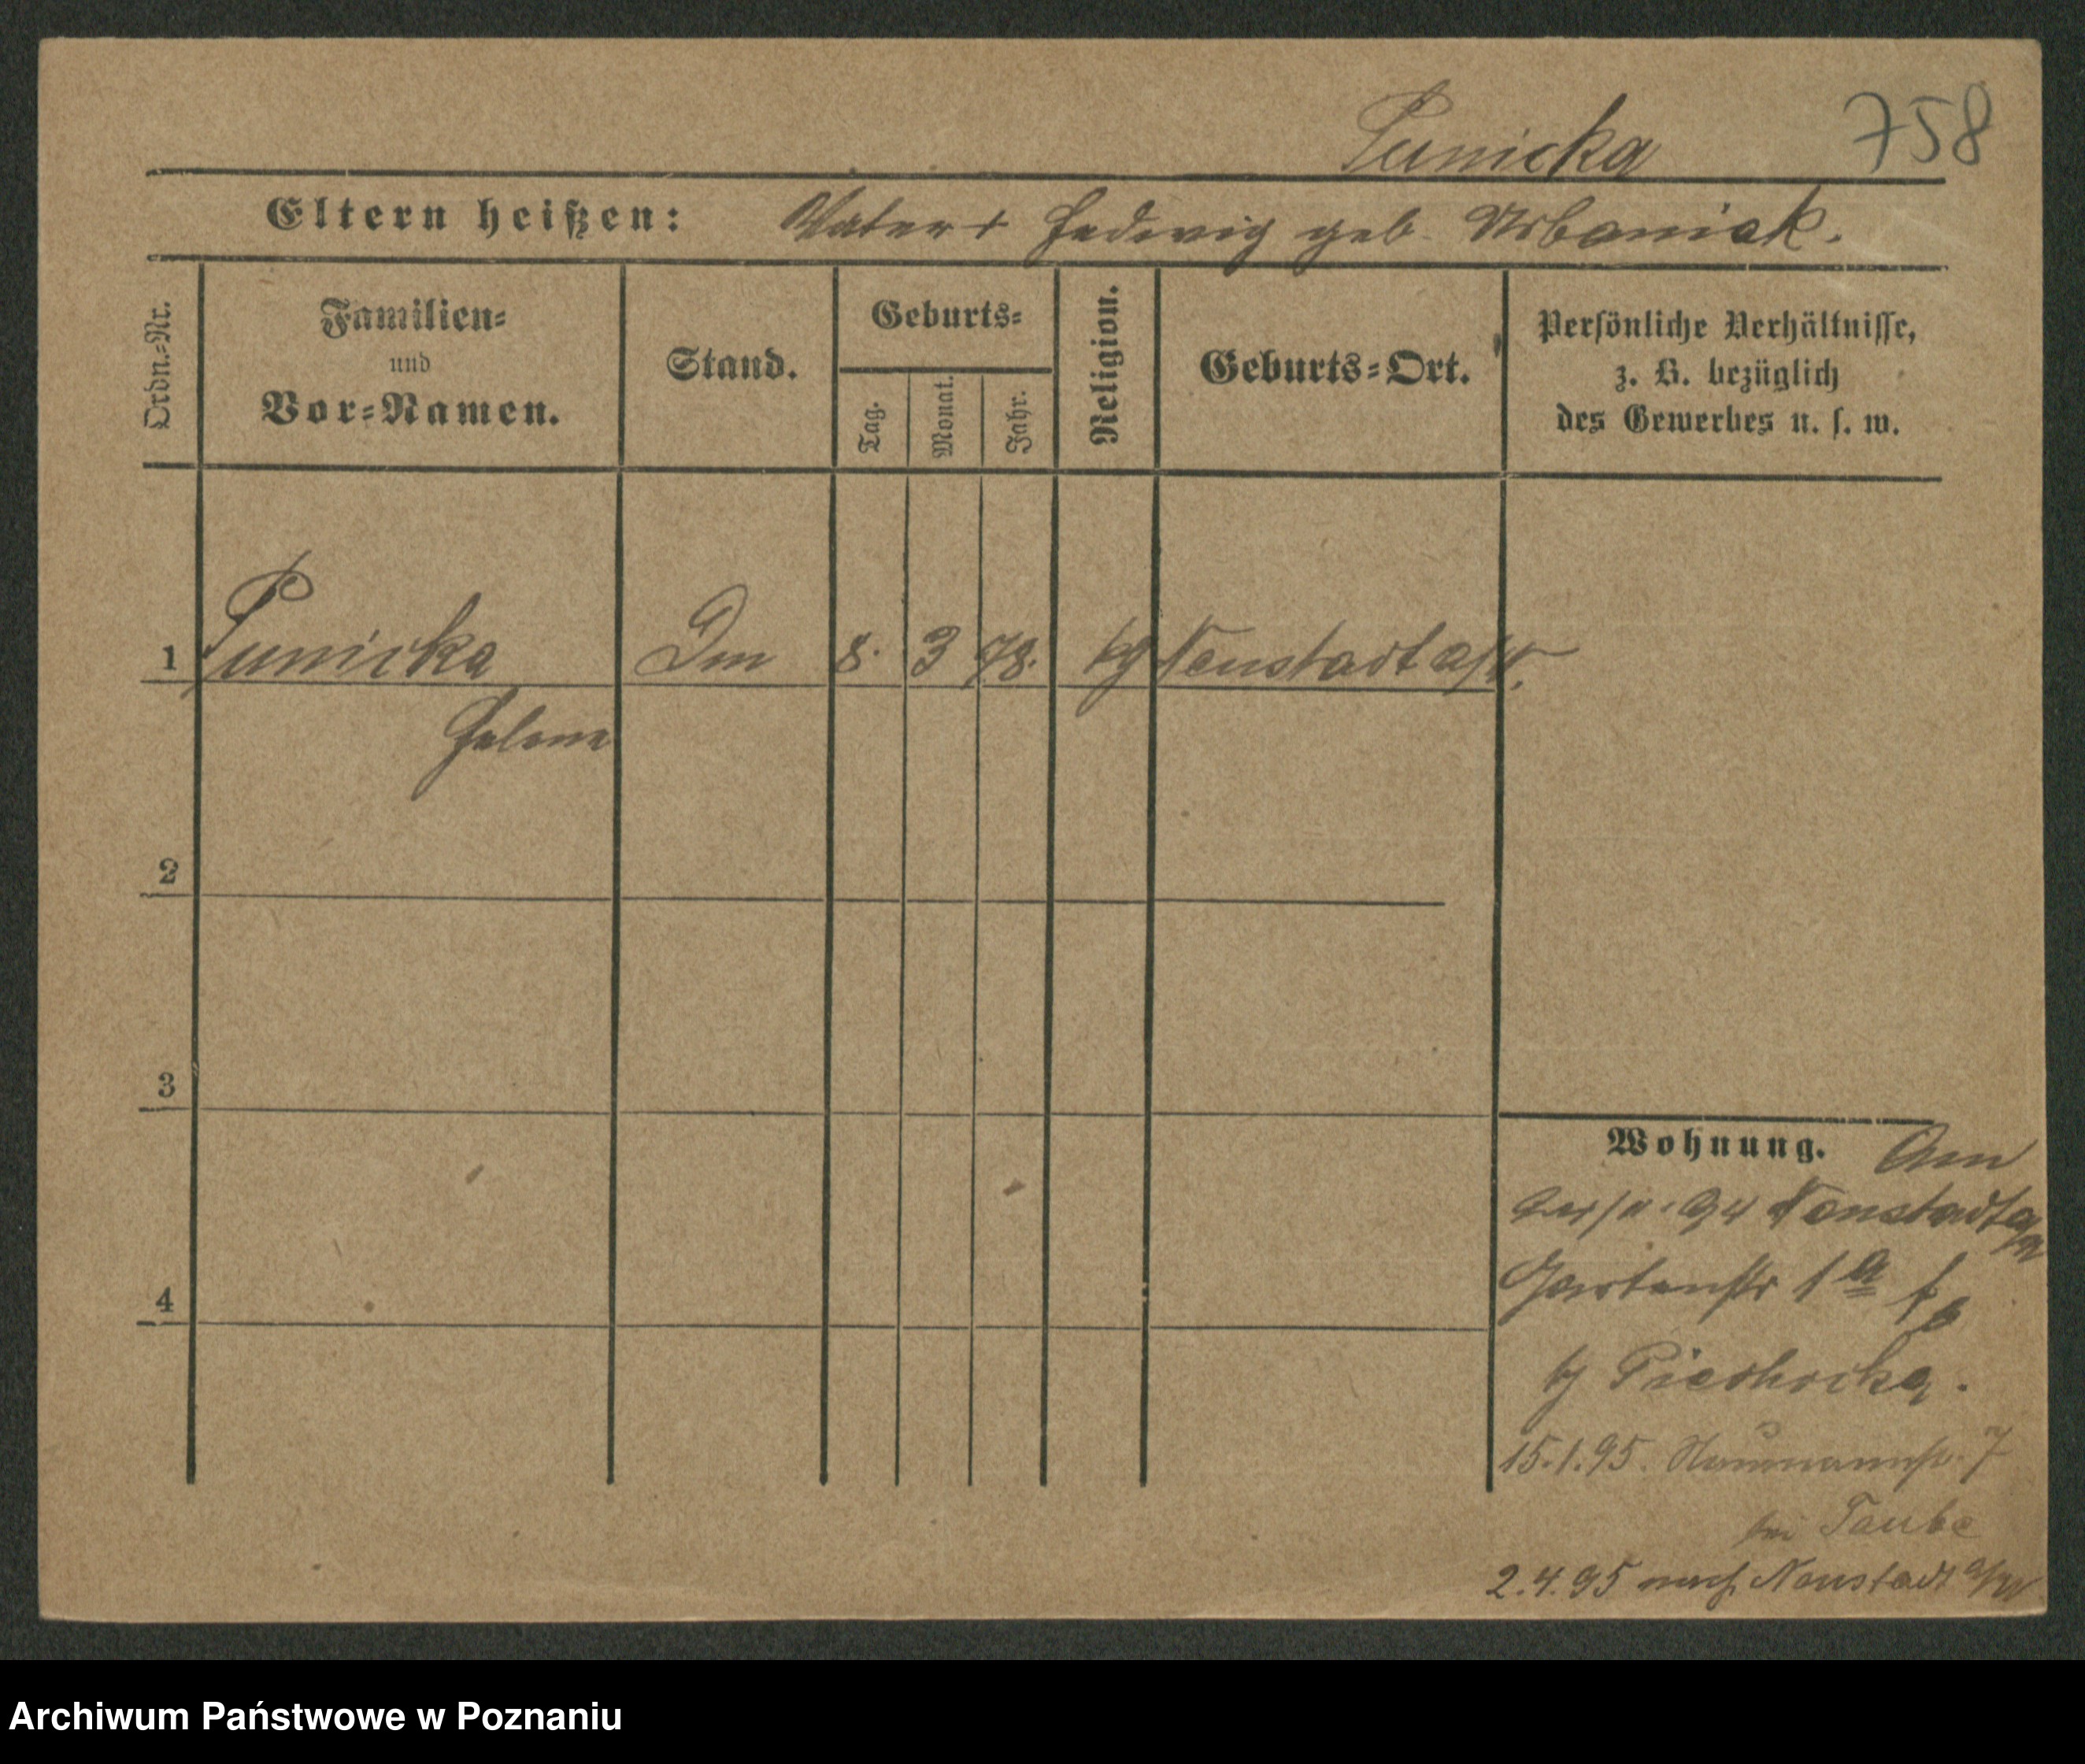 Punicka 758
Eltern heißen: Vater + Hedwig geb. Urbaniak.
Ordn.-Nr.
Familien-
und
Vor-Namen.
Stand.
Geburts-
Tag.
Monat.
Jahr.
Religion.
Geburts-Ort.
Persönliche Verhältnisse,
z. B. bezüglich
des Gewerbes u. s. w.
1 Punicka Dm 8. 3 78. kg Neustadt a/W.
Helene
2
3
4
Wohnung. Am
94 Neustadt
Gartenstr 1a
15.1.95. Naumannstr. 7
bei Taube
2.4.95 nach Neustadt a/W
Archiwum Państwowe w Poznaniu